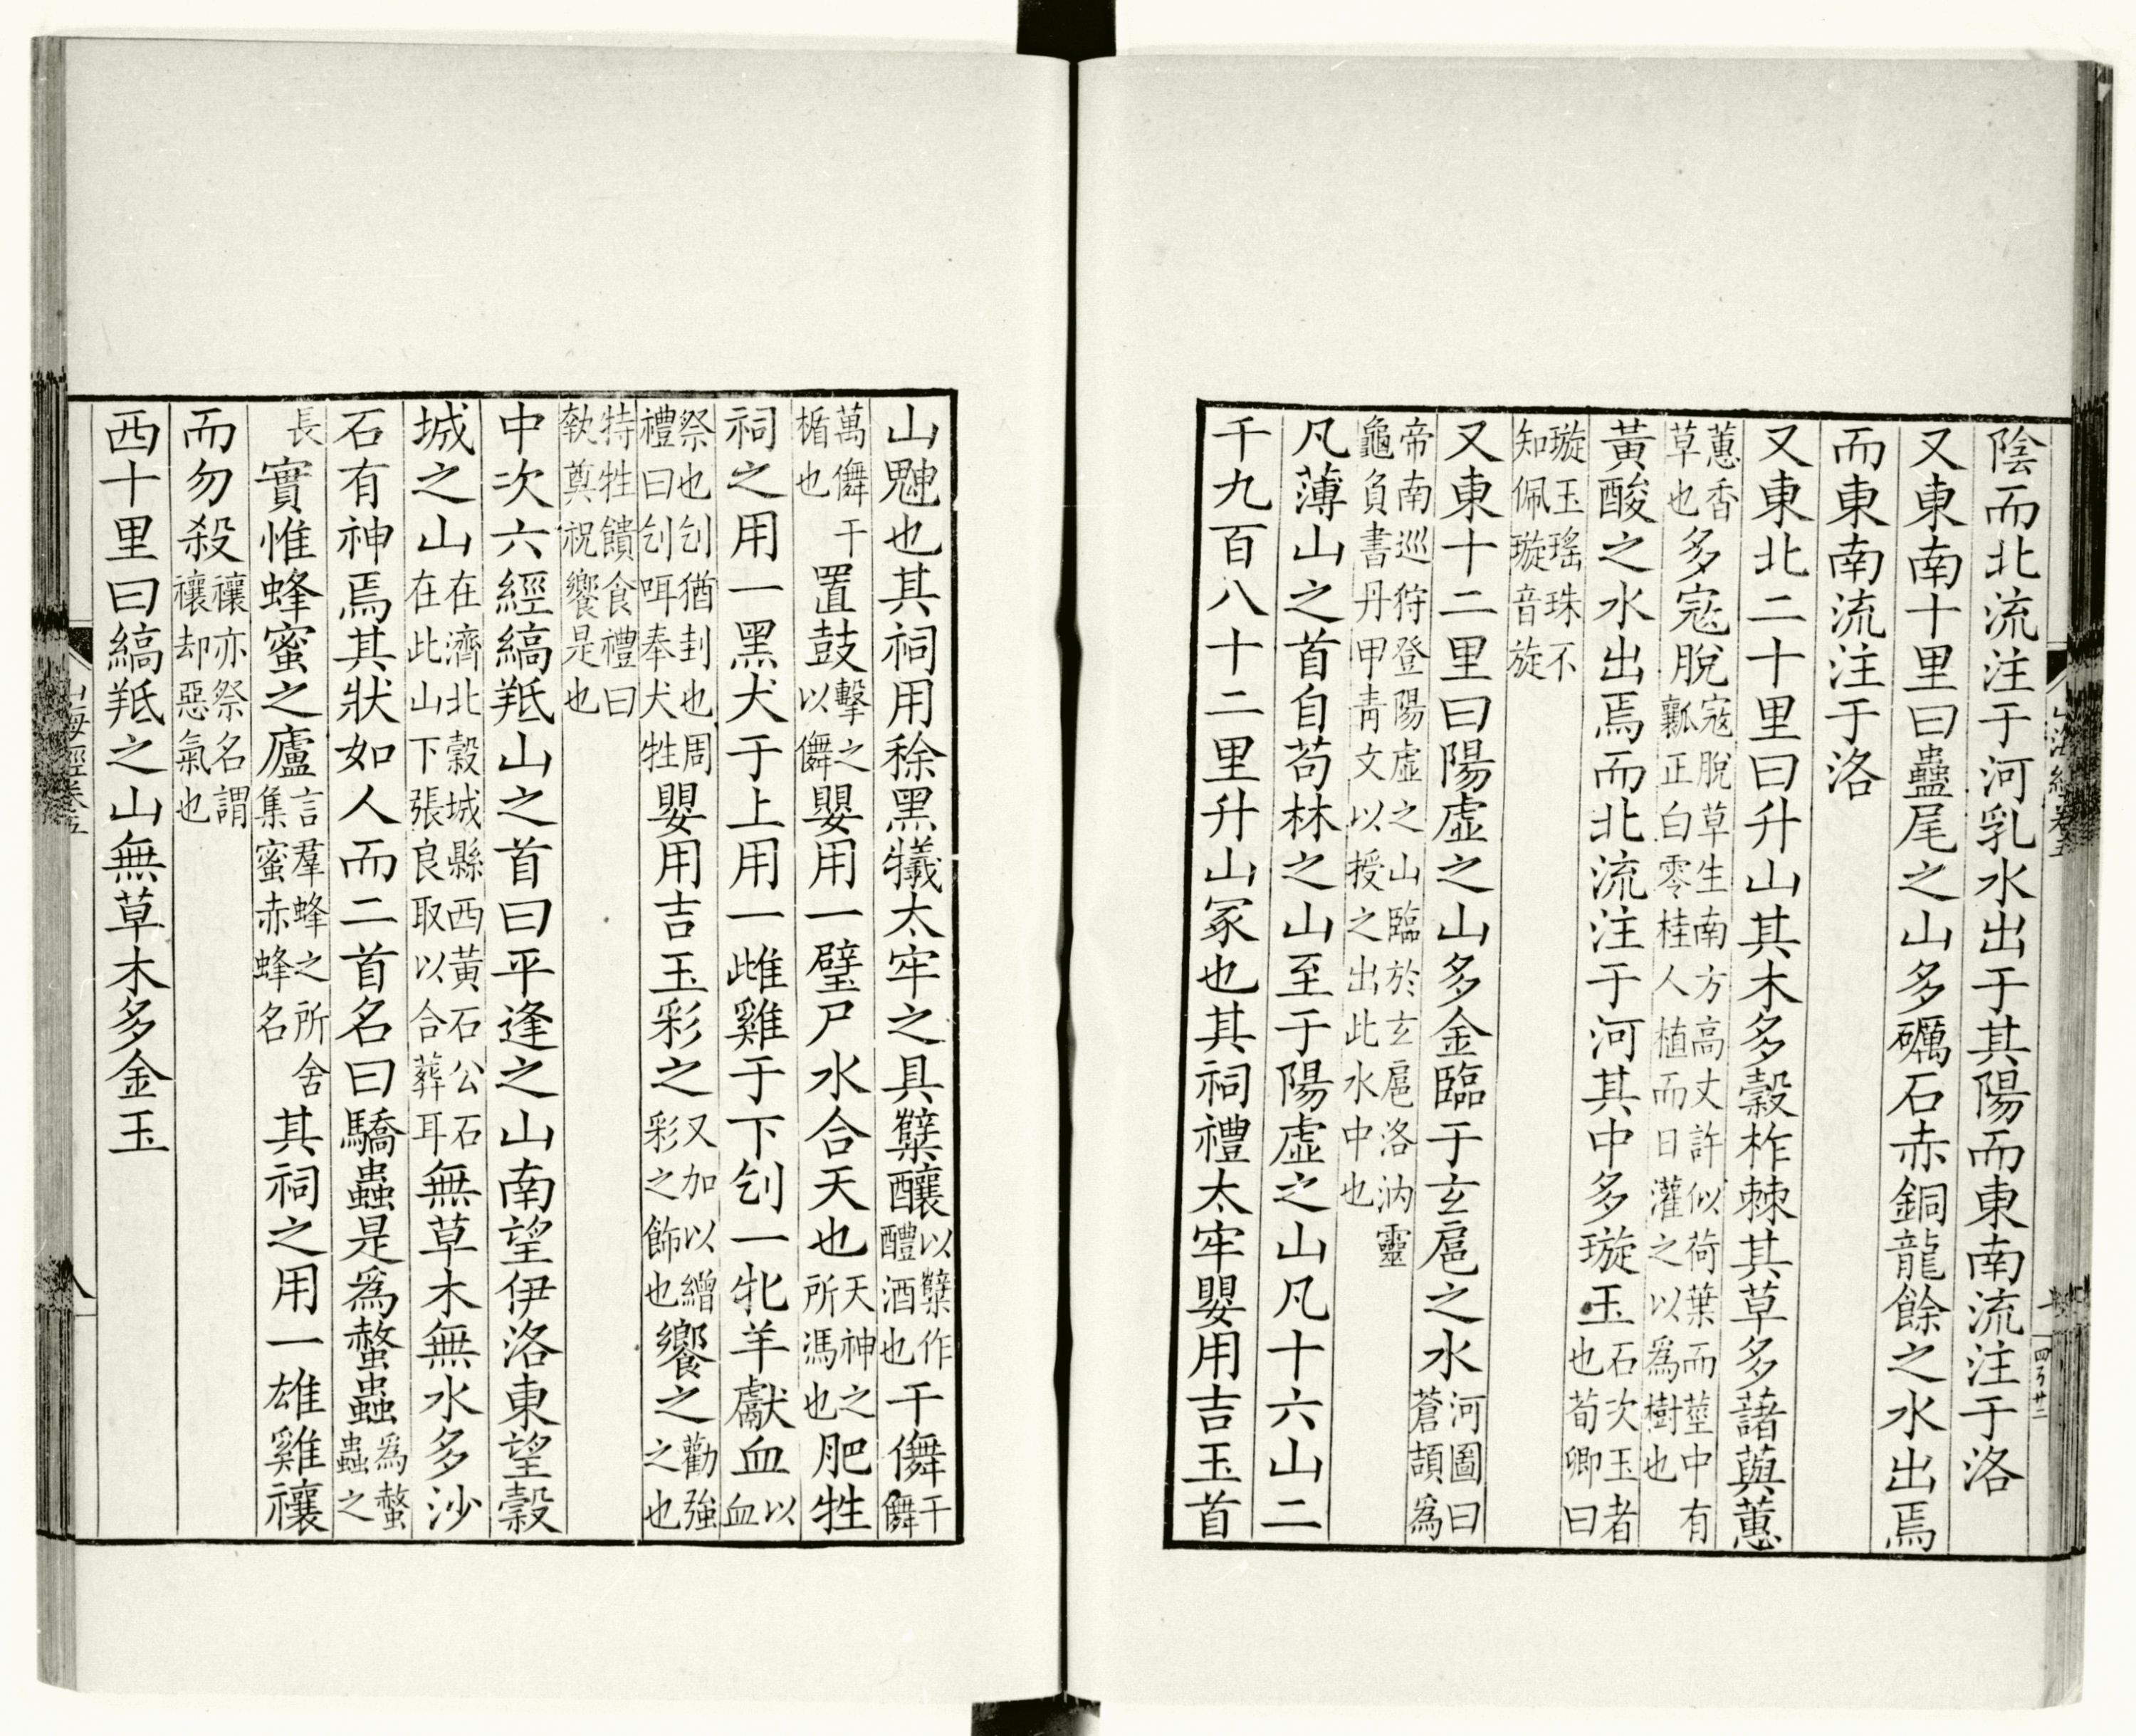 陰而北流注于河乳水出于其陽而東南流注于洛
又東南十里曰蠱尾之山多礪石赤銅龍餘之水出焉
而東南流注于洛
又東北二十里曰升山其木多穀柞棘其草多藷藇蕙
蕙香草也多寇脫寇脫草生南方高丈許似荷葉而莖中有瓤正白零桂人植而日灌之以爲樹也
黃酸之水出焉而北流注于河其中多璇玉石次玉者也荀卿曰
璇玉瑤珠不知佩璇音旋
又東十二里曰陽虛之山多金臨于玄扈之水河圖曰蒼頡爲
帝南巡狩登陽虛之山臨於玄扈洛汭靈龜負書丹甲青文以授之出此水中也
凡薄山之首自苟林之山至于陽虛之山凡十六山二
千九百八十二里升山冢也其祠禮太牢嬰用吉玉首
山䰠也其祠用稌黑犧太牢之具櫱釀以櫱作醴酒也干儛干儛
萬儛干楯也置鼓擊之以儛嬰用一璧尸水合天也天神之所馮也肥牲
祠之用一黑犬于上用一雌雞于下刉一牝羊獻血以血
祭也刉猶刲也周禮曰刉咡奉犬牲嬰用吉玉彩之又加以繒彩之飾也饗之勸強之也
特牲饋食禮曰執奠祝饗是也
中次六經縞羝山之首曰平逢之山南望伊洛東望穀
城之山在濟北穀城縣西黃石公石在此山下張良取以合葬耳無草木無水多沙
石有神焉其狀如人而二首名曰驕蟲是爲螫蟲爲螫蟲之
長實惟蜂蜜之廬言羣蜂之所舍集蜜赤蜂名其祠之用一雄雞禳
而勿殺禳亦祭名謂禳却惡氣也
西十里曰縞羝之山無草木多金玉
山海經卷五
八